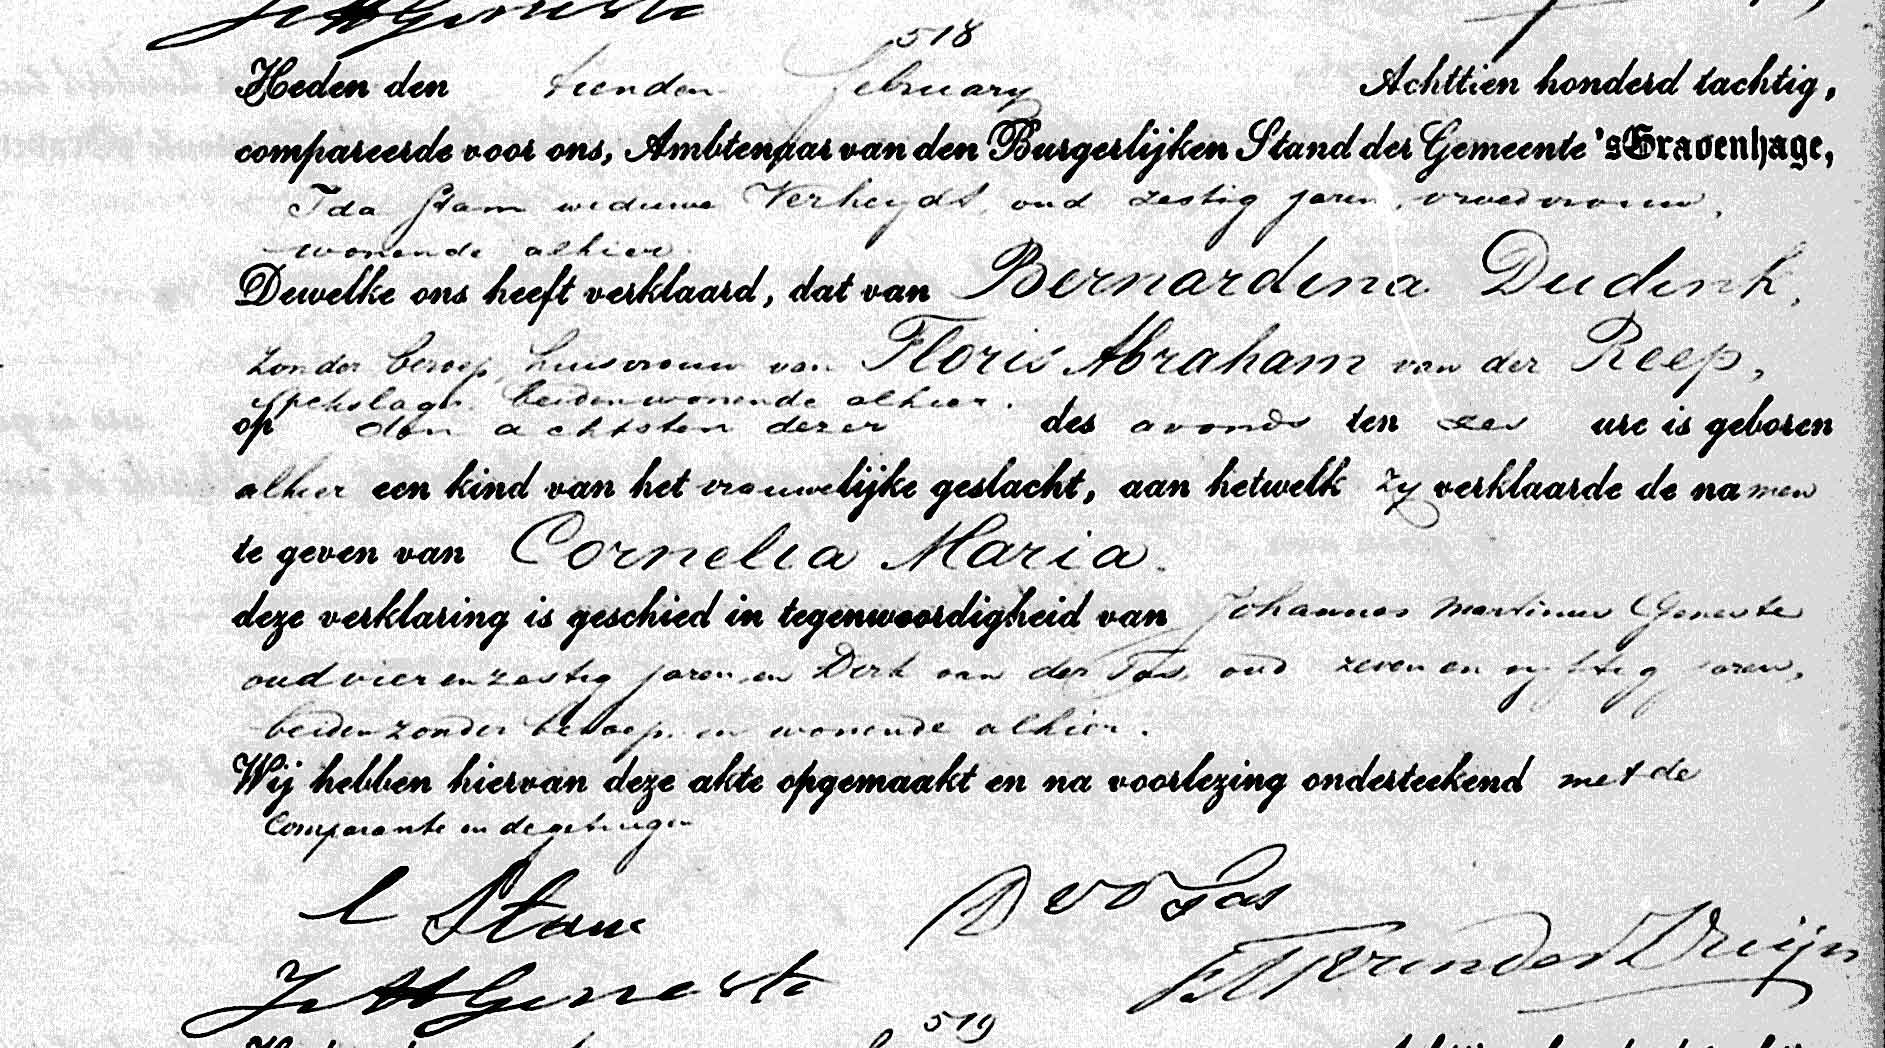 J M Geneste
518
Heden den tienden february Achttien honderd tachtig,
compareerde voor ons, Ambtenaar van den Burgerlijken Stand der Gemeente 'sGravenhage,
Ida Stam weduwe Verheydt, oud zestig jaren, vroedvrouw,
wonende alhier
Dewelke ons heeft verklaard, dat van Bernardina Dudink,
zonder beroep, huisvrouw van Floris Abraham van der Reep,
spekslager, beiden wonende alhier.
op den achtsten dezer des avonds ten zes ure is geboren
alhier een kind van het vrouwelijke geslacht, aan hetwelk zy verklaarde de namen
te geven van Cornelia Maria.
deze verklaring is geschied in tegenwoordigheid van Johannes Martinus Geneste
oud vier en zestig jaren, en Dirk van der Tas, oud zeven en vyftig jaren,
beiden zonder beroep en wonende alhier.
Wij hebben hiervan deze akte opgemaakt en na voorlezing onderteekend met de
Comparante en de getuigen
Stam
D v d Tas
J M Geneste
519